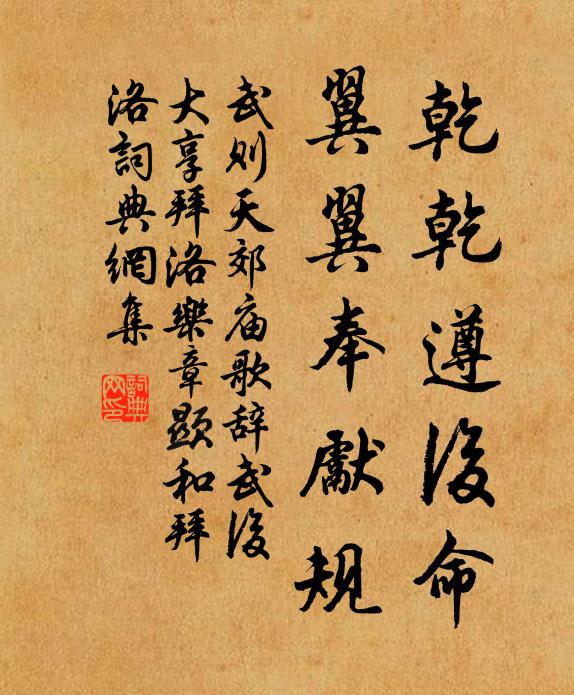 乾乾遵後命
翼翼奉獻規
武则天郊庙歌辞武後
大享拜洛樂章顯和拜
洛詞典網集
詞典網印